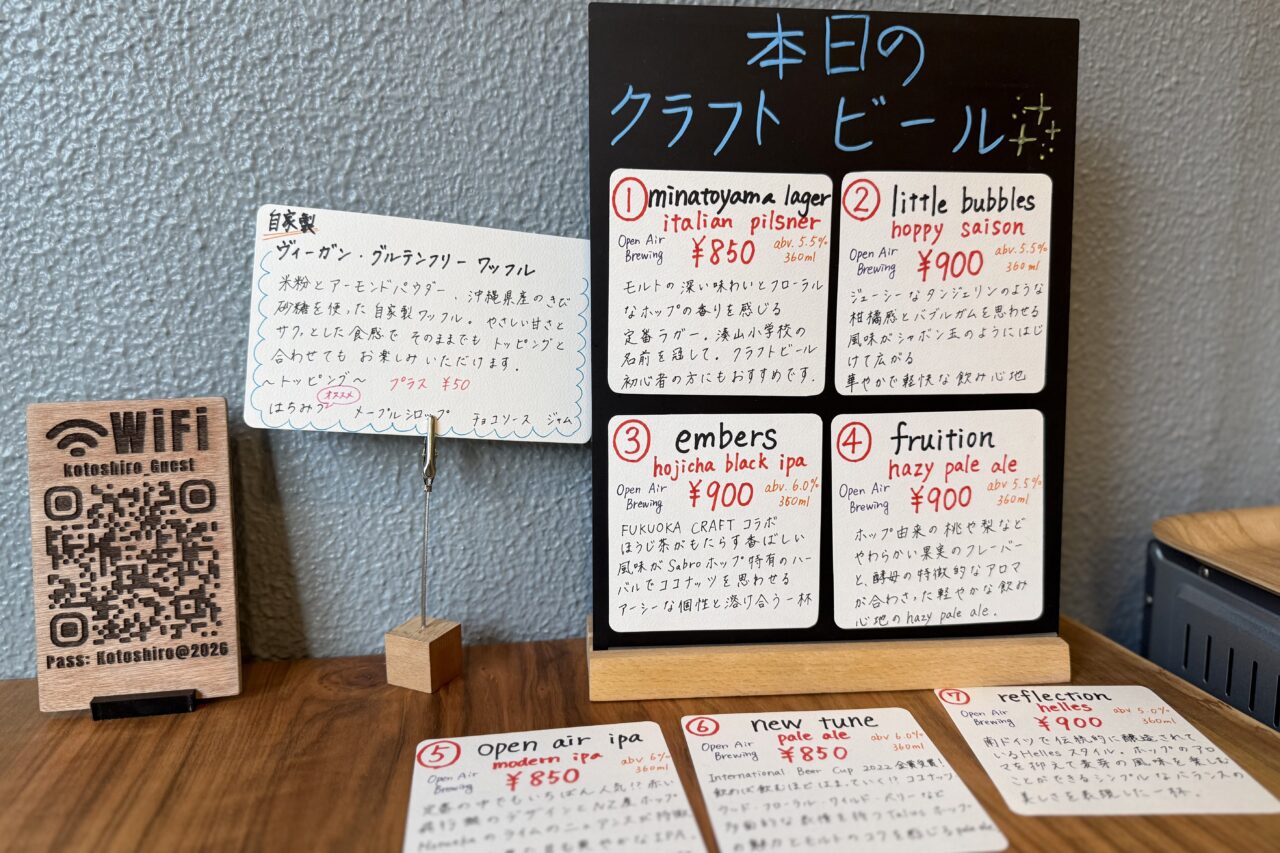 本日の
クラフト ビール
自家製
ヴィーガン・グルテンフリー ワッフル
米粉とアーモンドパウダー、沖縄県産のきび
砂糖を使った自家製ワッフル。やさしい甘さと
サクッとした食感で そのままでも トッピングと
合わせても お楽しみいただけます.
〜トッピング〜 プラス ¥50
オススメ
はちみつ メープルシロップ チョコソース ジャム
WiFi
kotoshiro_Guest
Pass: Kotoshiro@2026
① minatoyama lager
italian pilsner
Open Air
Brewing
¥850
abv. 5.5%
360ml
モルトの深い味わいとフローラル
なホップの香りを感じる
定番ラガー。湊山小学校の
名前を冠して。クラフトビール
初心者の方にもおすすめです.
② little bubbles
hoppy saison
Open Air
Brewing
¥900
abv. 5.5%
360ml
ジューシーなタンジェリンのような
柑橘感とバブルガムを思わせる
風味がシャボン玉のようにはじ
けて広がる
華やかで軽快な飲み心地
③ embers
hojicha black ipa
Open Air
Brewing
¥900
abv. 6.0%
360ml
FUKUOKA CRAFT コラボ
ほうじ茶がもたらす香ばしい
風味が Sabro ホップ特有のハー
バルでココナッツを思わせる
アーシーな個性と溶け合う一杯
④ fruition
hazy pale ale
Open Air
Brewing
¥900
abv. 5.5%
360ml
ホップ由来の桃や梨など
やわらかい果実のフレーバー
と、酵母の特徴的なアロマ
が合わさった軽やかな飲み
心地の hazy pale ale.
⑤ open air ipa
modern ipa
Open Air
Brewing
¥850
abv 6%
360ml
定番の中でもいちばん人気!? 赤い
飛行機のデザインとNZ産ホップ
のライムのニュアンスが特徴
爽やかなIPA.
⑥ new tune
pale ale
Open Air
Brewing
¥850
abv. 6.0%
360ml
International Beer Cup 2022 金賞受賞!
飲めば飲むほどはまっていく!? ココナッツ
ウッド・フローラル・ワイルド・ベリーなど
多面的な表情を持つ Talus ホップ
の魅力とモルトのコクを感じる pale ale.
⑦ reflection
helles
Open Air
Brewing
¥900
abv 5.0%
360ml
南ドイツで伝統的に醸造されて
いるHellesスタイル。ホップのアロ
マを抑えて麦芽の風味を楽しむ
ことができるシンプルなバランスの
美しさを表現した一杯.